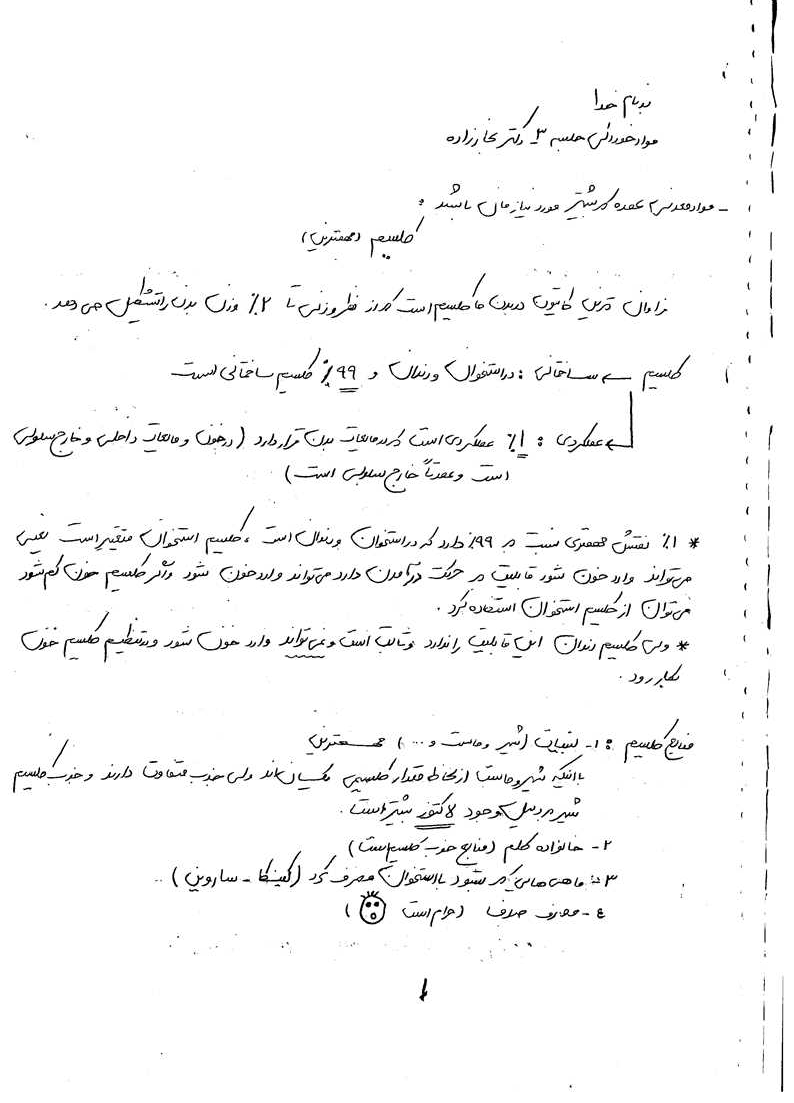 بنام خدا
مواد خوراکی جلسه ۳ دکتر نجارزاده
- مواد معدنی عمده که بیشتر مورد نیازمان باشد :
کلسیم (مهمترین)
فراوان ترین کاتیون در بدن ما کلسیم است که از نظر وزنی تا ۲٪ وزن بدن را تشکیل می دهد.
کلسیم ← ساختمانی : در استخوان و دندان و ۹۹٪ کلسیم ساختمانی است
← عملکردی : ۱٪ عملکردی است که در مایعات بدن قرار دارد (در خون و مایعات داخلی و خارج سلولی
است و عمدتاً خارج سلولی است)
* ۱٪ نقش مهمتری نسبت به ۹۹٪ دارد که در استخوان و دندان است، کلسیم استخوان متغیر است یعنی
می‌تواند وارد خون شود قابلیت به حرکت درآمدن دارد می‌تواند وارد خون شود و اگر کلسیم خون کم شود
می‌توان از کلسیم استخوان استفاده کرد.
* ولی کلسیم دندان این قابلیت را ندارد و ثابت است و نمی‌تواند وارد خون شود و در تنظیم کلسیم خون
بکار رود.
منابع کلسیم : ۱- لبنیات (شیر و ماست و ...) مهمترین
با اینکه شیر و ماست از لحاظ مقدار کلسیمی یکسان‌اند ولی جذب متفاوت دارند و جذب کلسیم
شیر به دلیل وجود لاکتوز بیشتر است.
۲- خانواده کلم (منابع خوب کلسیم است)
۳- ماهی هایی که بشود با استخوان مصرف کرد (کیلکا - ساردین) ..
٤- مصرف صدف (حرام است )
۱